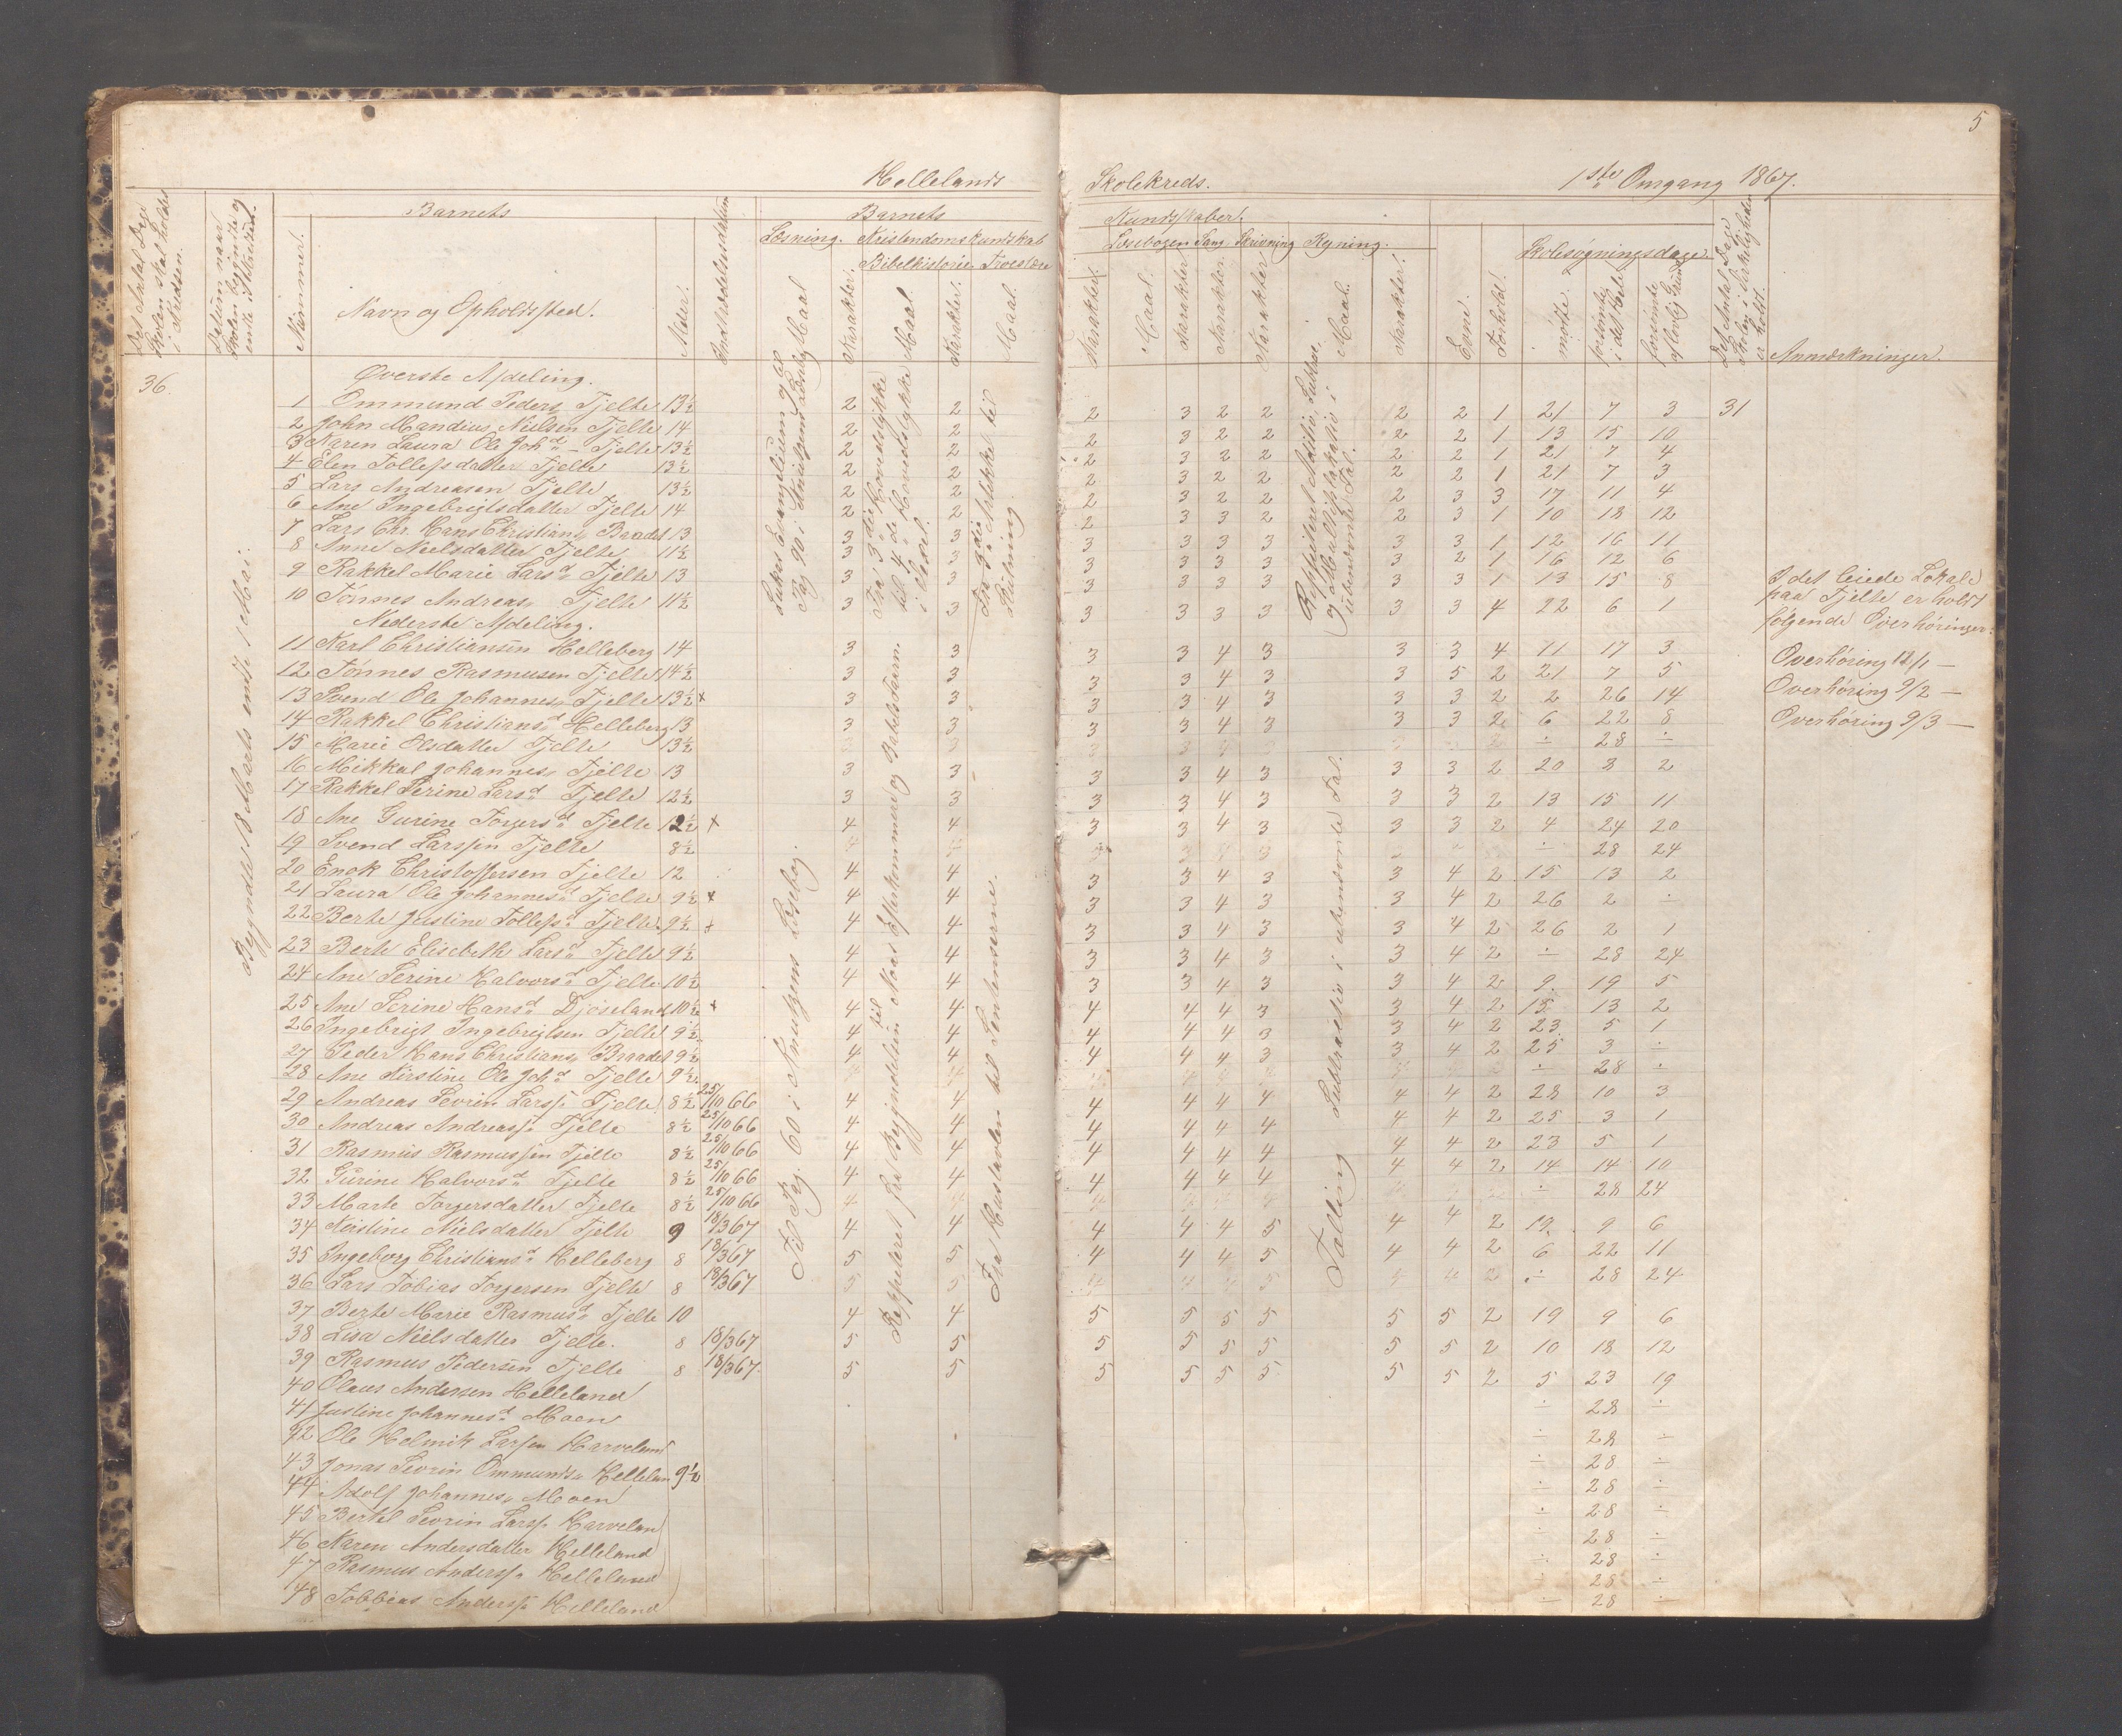 5
Hellelands Skolekreds. 1ste Omgang 1867.
Det Antal Dage Skolen skal holdes i Kredsen.
Datum naar Skolen begyndte og endte i Kredsen.
Barnets
Nummer.
Navn og Opholdssted.
Alder.
Indtrædelsesdatum
Barnets Kundskaber.
Læsning. Kristendomskundskab Læsebogen Sang Skrivning Regning.
Bibelhistorie Troeslære
Maal Karakter. Maal. Karakter. Maal. Karakter. Maal. Karakter. Karakter. Karakter. Maal. Karakter.
Evne. Forhold.
Skolesøgningsdage.
mødte. forsømte i det Hele forsømte af lovlig Grund
Det Antal Dage Skolen i Virkeligheden er holdt.
Anmærkninger.
36.
Begyndte 18 Marts endte 1 Mai.
Øverste Afdeling.
1 Ommund Peders. Tjelte 13½ 2 2 2 3 2 2 2 2 1 21 7 3 31
2 John Mandius Nielsen Tjelte 14 2 2 2 3 2 2 2 2 1 13 15 10
3 Karen Laura Ole Joh.d. Tjelte 13½ 2 2 2 3 2 2 2 2 1 21 7 4
4 Elen Tollefsdatter Tjelte 13½ 2 2 2 3 2 2 2 2 1 21 7 3
5 Lars Andreasen Tjelte 13½ 2 2 2 3 2 2 2 3 3 17 11 4
6 Ane Ingebrigtsdatter Tjelte 14 2 2 2 3 3 2 2 3 1 10 18 12
7 Lars Chr. Hans Christians. Braadet 13 3 3 3 3 3 3 3 3 1 12 16 11
8 Anne Neelsdatter Tjelte 11½ 3 3 3 3 3 3 3 2 1 16 12 6
9 Rakkel Marie Lars.d. Tjelte 13 3 3 3 3 3 3 3 3 1 13 15 8
10 Tønnes Andreas. Tjelte 11½ 3 3 3 3 3 3 3 3 4 22 6 1
Nederste Afdeling.
11 Karl Christiansen Helleberg 14 3 3 3 3 4 3 3 3 4 11 17 3
12 Tønnes Rasmusen Tjelte 14½ 3 3 3 3 4 3 3 5 2 21 7 5
13 Svend Ole Johannes. Tjelte 13½ x 3 3 3 3 4 3 3 3 2 2 26 14
14 Rakkel Christians.d. Helleberg 13 3 3 3 3 4 3 3 3 2 6 22 8
15 Marie Olsdatter Tjelte 13½ ÷ 28 ÷
16 Mikkal Johannes. Tjelte 13 3 3 3 3 4 3 3 3 2 20 3 2
17 Rakkel Serine Lars.d. Tjelte 12½ 3 3 3 3 4 3 3 3 2 13 15 11
18 Ane Gurine Torgers.d. Tjelte 12½ x 4 4 3 3 4 3 3 3 2 4 24 20
19 Svend Larssen Tjelte 8½ ÷ 28 24
20 Enok Christoffersen Tjelte 12 4 4 3 3 4 3 3 4 2 15 13 2
21 Laura Ole Johannes.d. Tjelte 9½ x 4 4 3 3 4 3 3 4 2 26 2 ÷
22 Berte Justine Tollefs.d. Tjelte 9½ x 4 4 3 3 4 3 3 4 2 26 2 1
23 Berte Elisebeth Lars.d. Tjelte 9½ 4 4 3 3 4 3 3 4 2 ÷ 28 24
24 Ane Serine Halvors.d. Tjelte 10½ 4 4 3 3 4 3 3 4 2 9 19 5
25 Ane Serine Hans.d. Djoseland 10½ x 4 4 4 4 4 3 3 4 2 15 13 2
26 Ingebrigt Ingebrigtsen Tjelte 9½ 4 4 4 4 4 3 3 4 2 23 5 1
27 Peder Hans Christians. Braadet 9½ 4 4 4 4 4 3 3 4 2 25 3 ÷
28 Ane Kirstine Ole Joh.d. Tjelte 9½ ÷ 28 ÷
29 Andreas Sevrin Larss. Tjelte 8½ 25/10 66 4 4 4 4 4 4 4 4 2 28 10 3
30 Andreas Andreass. Tjelte 8½ 25/10 66 4 4 4 4 4 4 4 4 2 25 3 1
31 Rasmus Rasmussen Tjelte 8½ 25/10 66 4 4 4 4 4 4 4 4 2 23 5 1
32 Gurine Halvors.d. Tjelte 8½ 25/10 66 4 4 4 4 4 4 4 4 2 14 14 10
33 Marte Torgersdatter Tjelte 8½ 25/10 66 4 ÷ 28 24
34 Kristine Nielsdatter Tjelte 9 18/3 67 4 4 4 4 4 5 4 4 2 19 9 6
35 Ingeborg Christians.d. Helleberg 8 18/3 67 5 5 4 4 4 5 4 4 2 6 22 11
36 Lars Tobias Torgersen Tjelte 8 18/3 67 5 5 ÷ 28 24
37 Berte Marie Rasmus.d. Tjelte 10 4 4 5 5 5 5 5 5 2 19 9 6
38 Lisa Nielsdatter Tjelte. 8 18/3 67 5 5 5 5 5 5 5 5 2 10 18 12
39 Rasmus Pedersen Tjelte 8 18/3 67. 5 5 5 5 5 5 5 5 2 5 23 19
40 Olaus Andersen Helleland ÷ 28 ÷
41 Justine Johannes.d. Moen ÷ 28 ÷
42 Ole Helmik Larsen Harveland ÷ 28 ÷
43 Jonas Sevrin Ommunds. Hellelan 9½ ÷ 28 ÷
44 Adolf Johannes. Moen ÷ 28 ÷
45 Bertel Sevrin Larss. Harvelan ÷ 28 ÷
46 Karen Andersdatter Helleland ÷ 28 ÷
47 Rasmus Anderss. Helleland ÷ 28 ÷
48 Tobbias Anderss. Helleland ÷ 28 ÷
Lukas Evangelium og til Pag 90 i
Fra 3die Hovedstykke til 4de Hovedstykke
Fra 3die Artikkel til
Reppeteret Additio, Subtrac. og Multiplikatio i ubenævnte Tal.
Til Pag. 60 i Knutzens Læsebog.
Reppeteret fra Begyndelsen til Noas Efterkommere og Babelstaarn.
Fra Hustavlen til Sentenserne.
Tælling Subtractio i ubenævnte Tal.
I det leiede Lokale
paa Tjelte er holdt
følgende Overhøringer:
Overhøring 12/1 —
Overhøring 9/2 —
Overhøring 9/3 —